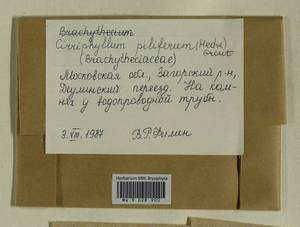 Brachythecium
Cirriphyllum piliferum (Hedw.)
Grout
(Brachytheciaceae)
Московская обл., Загорский р-н,
Деулинский переезд. На кам-
нях у водопроводной трубы.
3.VIII.1987 В.Р.Филин
Herbarium MW, Bryophyta